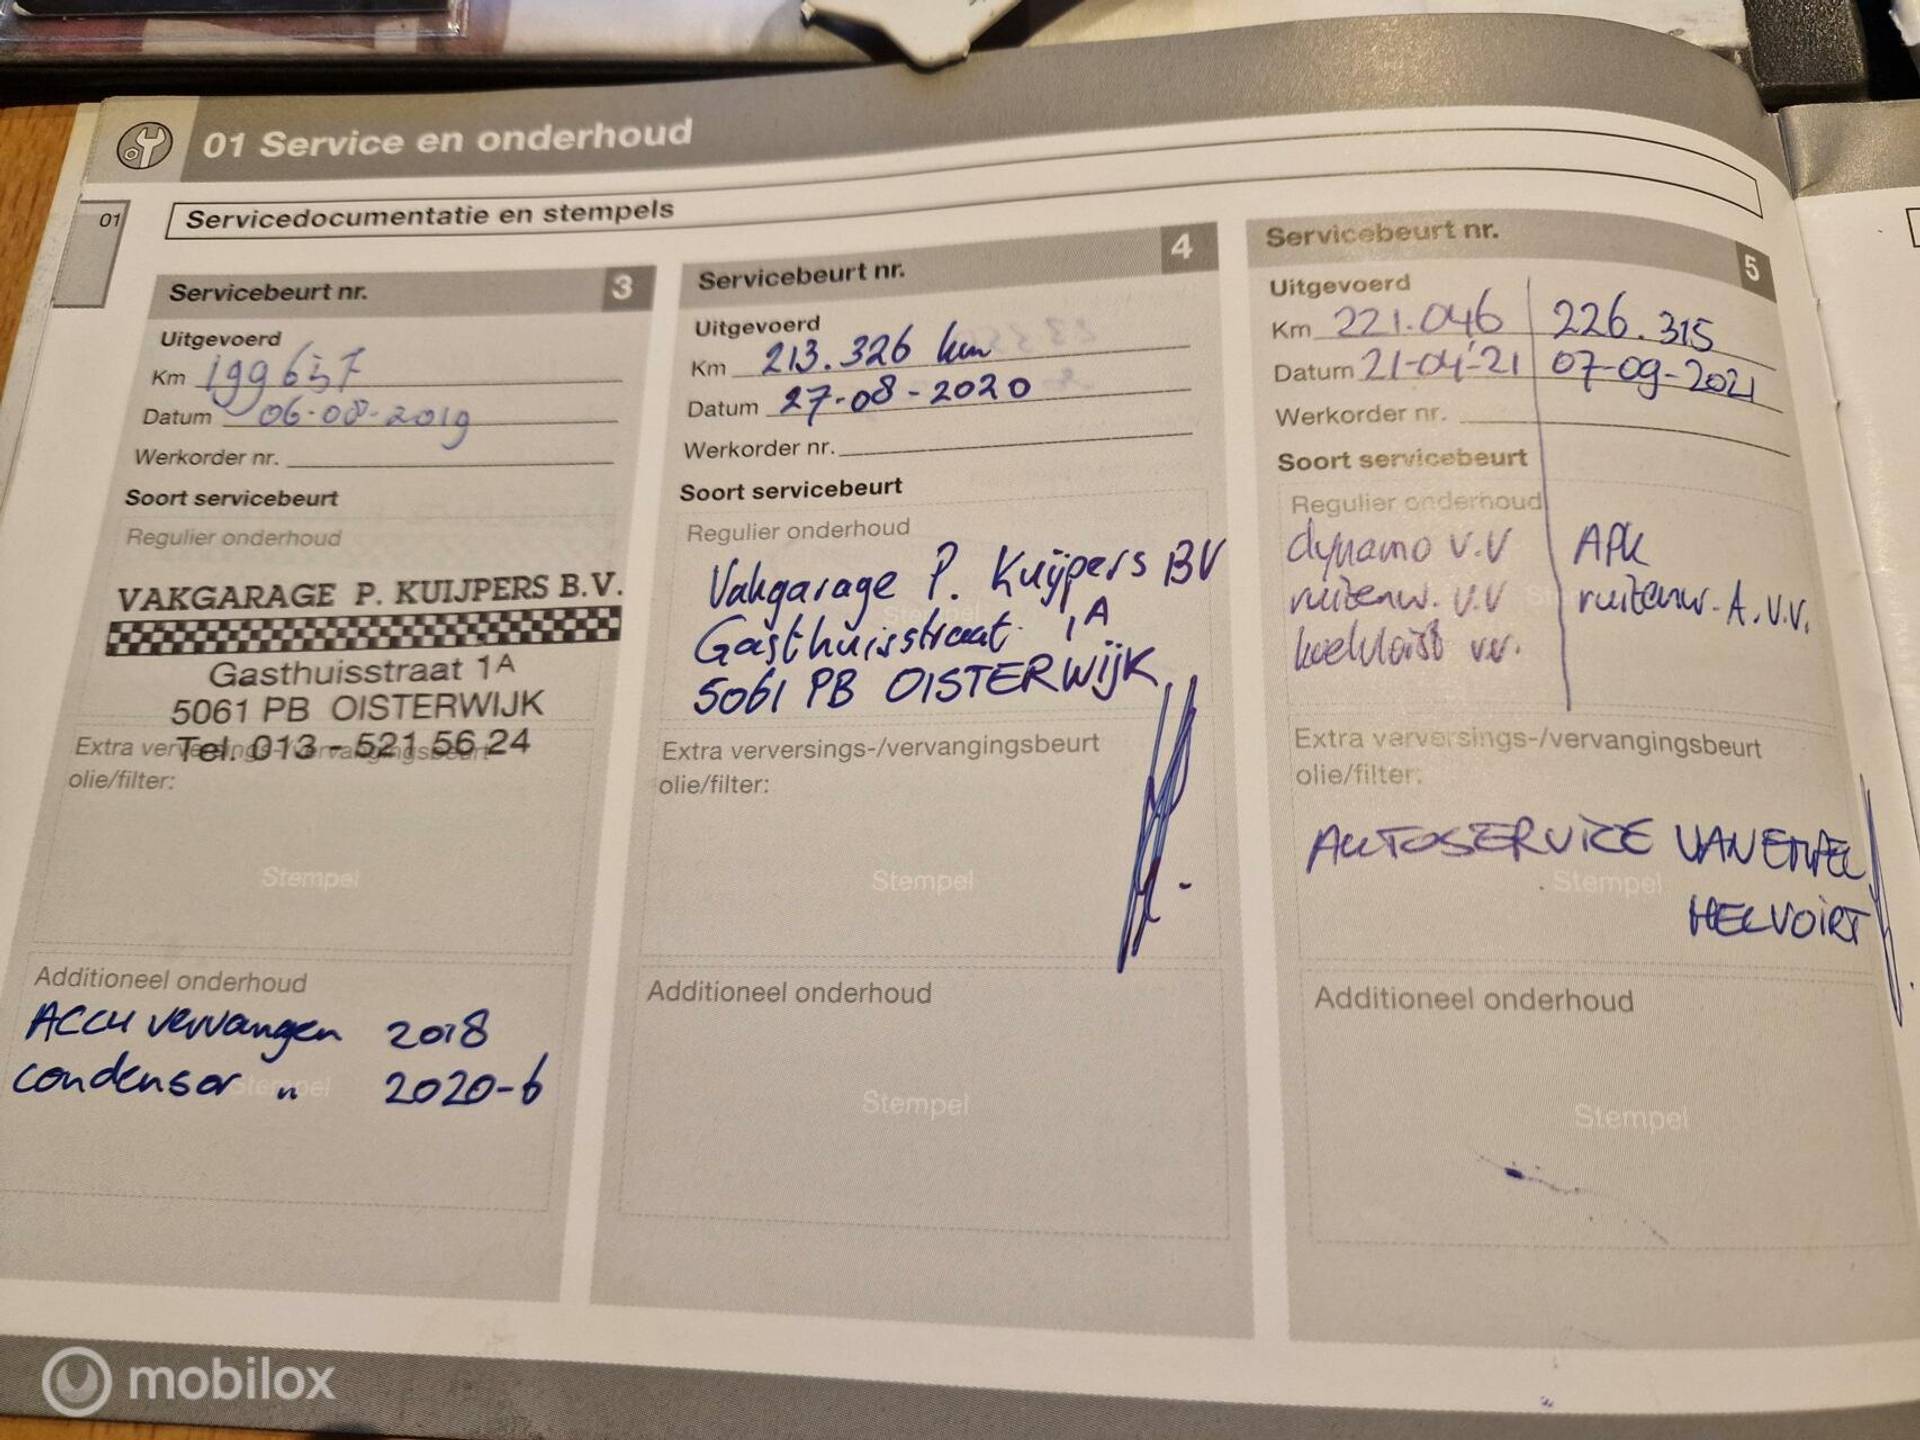 01 Service en onderhoud
01
Servicedocumentatie en stempels
Servicebeurt nr. 3
Uitgevoerd
Km 199637
Datum 06-08-2019
Werkorder nr.
Soort servicebeurt
Regulier onderhoud
VAKGARAGE P. KUIJPERS B.V.
Gasthuisstraat 1A
5061 PB OISTERWIJK
Tel. 013 - 521 56 24
Extra verversings-/vervangingsbeurt
olie/filter:
Stempel
Additioneel onderhoud
ACCU vervangen 2018
condensor " 2020-6
Stempel
Servicebeurt nr. 4
Uitgevoerd
Km 213.326 km
Datum 27-08-2020
Werkorder nr.
Soort servicebeurt
Regulier onderhoud
Vakgarage P. Kuijpers BV
Stempel
Gasthuisstraat 1A
5061 PB OISTERWIJK
Extra verversings-/vervangingsbeurt
olie/filter:
Stempel
Additioneel onderhoud
Stempel
Servicebeurt nr. 5
Uitgevoerd
Km 221.046 226.315
Datum 21-04-'21 07-09-2021
Werkorder nr.
Soort servicebeurt
Regulier onderhoud
dynamo v.v APK
ruitenw. v.v ruitenw. A.v.v.
v.v.
Extra verversings-/vervangingsbeurt
olie/filter:
AUTOSERVICE VAN EMPEL
Stempel
HELVOIRT
Additioneel onderhoud
Stempel
mobilox